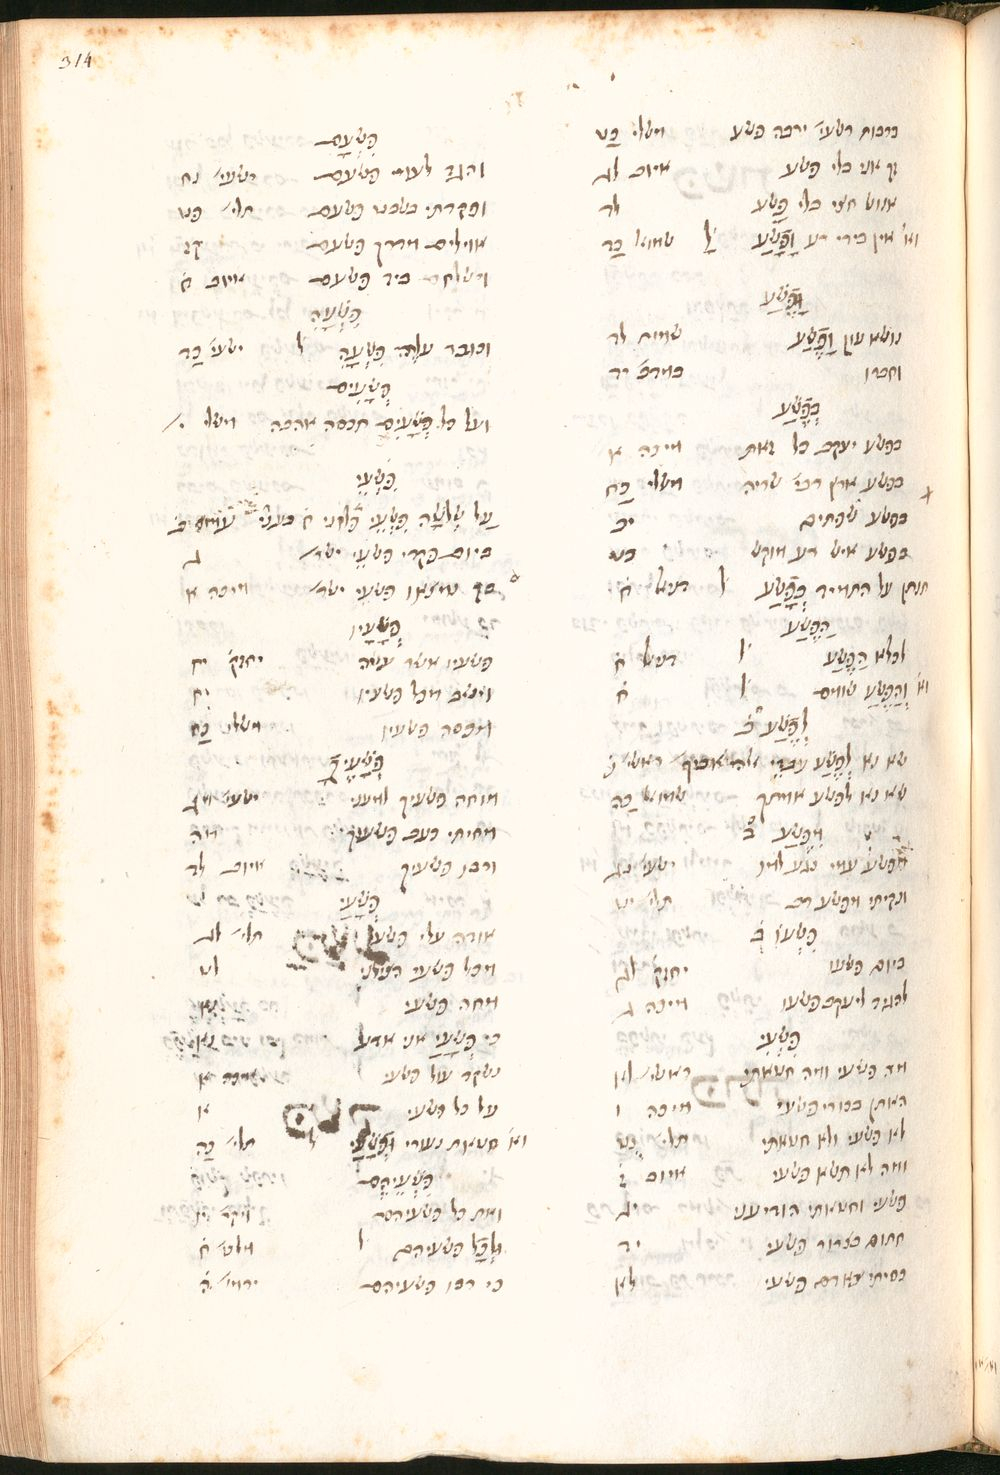 314
ברבות רשעי׳ ירבה פשע משלי כט
זך אני בלי פשע איוב לג
אנוש חצי בלי פָשַע לד
וא׳ אין בידי רע וָפֶשַע ל׳ שמואל כד
וָפֶשַע
נושא עון וָפֶשַע שמות לד
במדב׳ יד
בְּפֶשַע
בפשע יעקב כל זאת מיכה א
בפשע ארץ רבי׳ שריה משלי כח
בפשע שפתים יב
בפשע איש רע מוקש כט
תנתן על התמיד בְּפָשַע ל׳ דניאל ח
הַפֶשַע
לכלא הַפֶשַע ל׳ דניאל ט
וא׳ וְהַפֶשַע שומם ל׳ ח
לְפֶשַע ב׳
שא נא לְפֶשַע עבדי אלהי אביך ראשי׳ נ
שא נא לפשע אמתך שמואל כה
מִפֶשַע ב׳
מפשע עמי נגע למו ישעי׳ נג
ונקיתי מפשע רב תלי׳ יט
פִשְעוֹ ב׳
ביום פשעו יחזק׳ לג
להגיד ליעקב פשעו מיכה ג
פִּשְעִי
מה פשעי ומה חטאתי ראשי׳ לא
האתן בכורי פשעי מיכה ו
לא פשעי ולא חטאתי תלי׳ נט
ומה לא תשא פשעי איוב ז
פשעי וחטאתי הודיעני יג
חתום בצרור פשעי יד
כסיתי כאדם פשעי לא
פִשְעָם
והגד לעמי פשעם ישעי׳ נח
ופקדתי בשבט פשעם תלי׳ פט
אוילים מדרך פשעם קז
וישלחם ביד פשעם איוב ח
פִּשְעָהּ
וכבד עליה פִּשְעָהּ ל׳ ישעי׳ כד
פְּשָעִים
ועל כל פְּשָעִים תכסה אהבה משלי י׳
פִּשְעֵי
עַל שְלֹשָה פִּשְעֵי
ביום פקדי פשעי ישר׳ ג
בך נמצאו פשעי ישר׳ מיכה א
פְּשָעָיו
פשעיו אשר עשה יחזק׳ יח
וישב מכל פשעיו יח
מכסה פשעיו משלי כח
פְּשָעֶיךָ
מוחה פשעיך למעני ישעי׳ מג
מחיתי כעב פשעיך מד
ורבו פשעיך איוב לה
פְּשָעַי
אודה עלי פשעי תלי׳ לב
מכל פשעי הצילני לט
מחה פשעי נא
כי פְשָעַי אני אדע נא
נשקד עול פשעי איכה א
על כל פשעי א
וא׳ חטאות נעורי וּפְשָעַי ל׳ תלי׳ כה
פִּשְעֵיהֶם
ואת כל פשעיהם ויקר׳ יו
וּלְכָל פשעיהם ל׳ מלכי׳ ח
כי רבו פשעיהם ירמי׳ ה